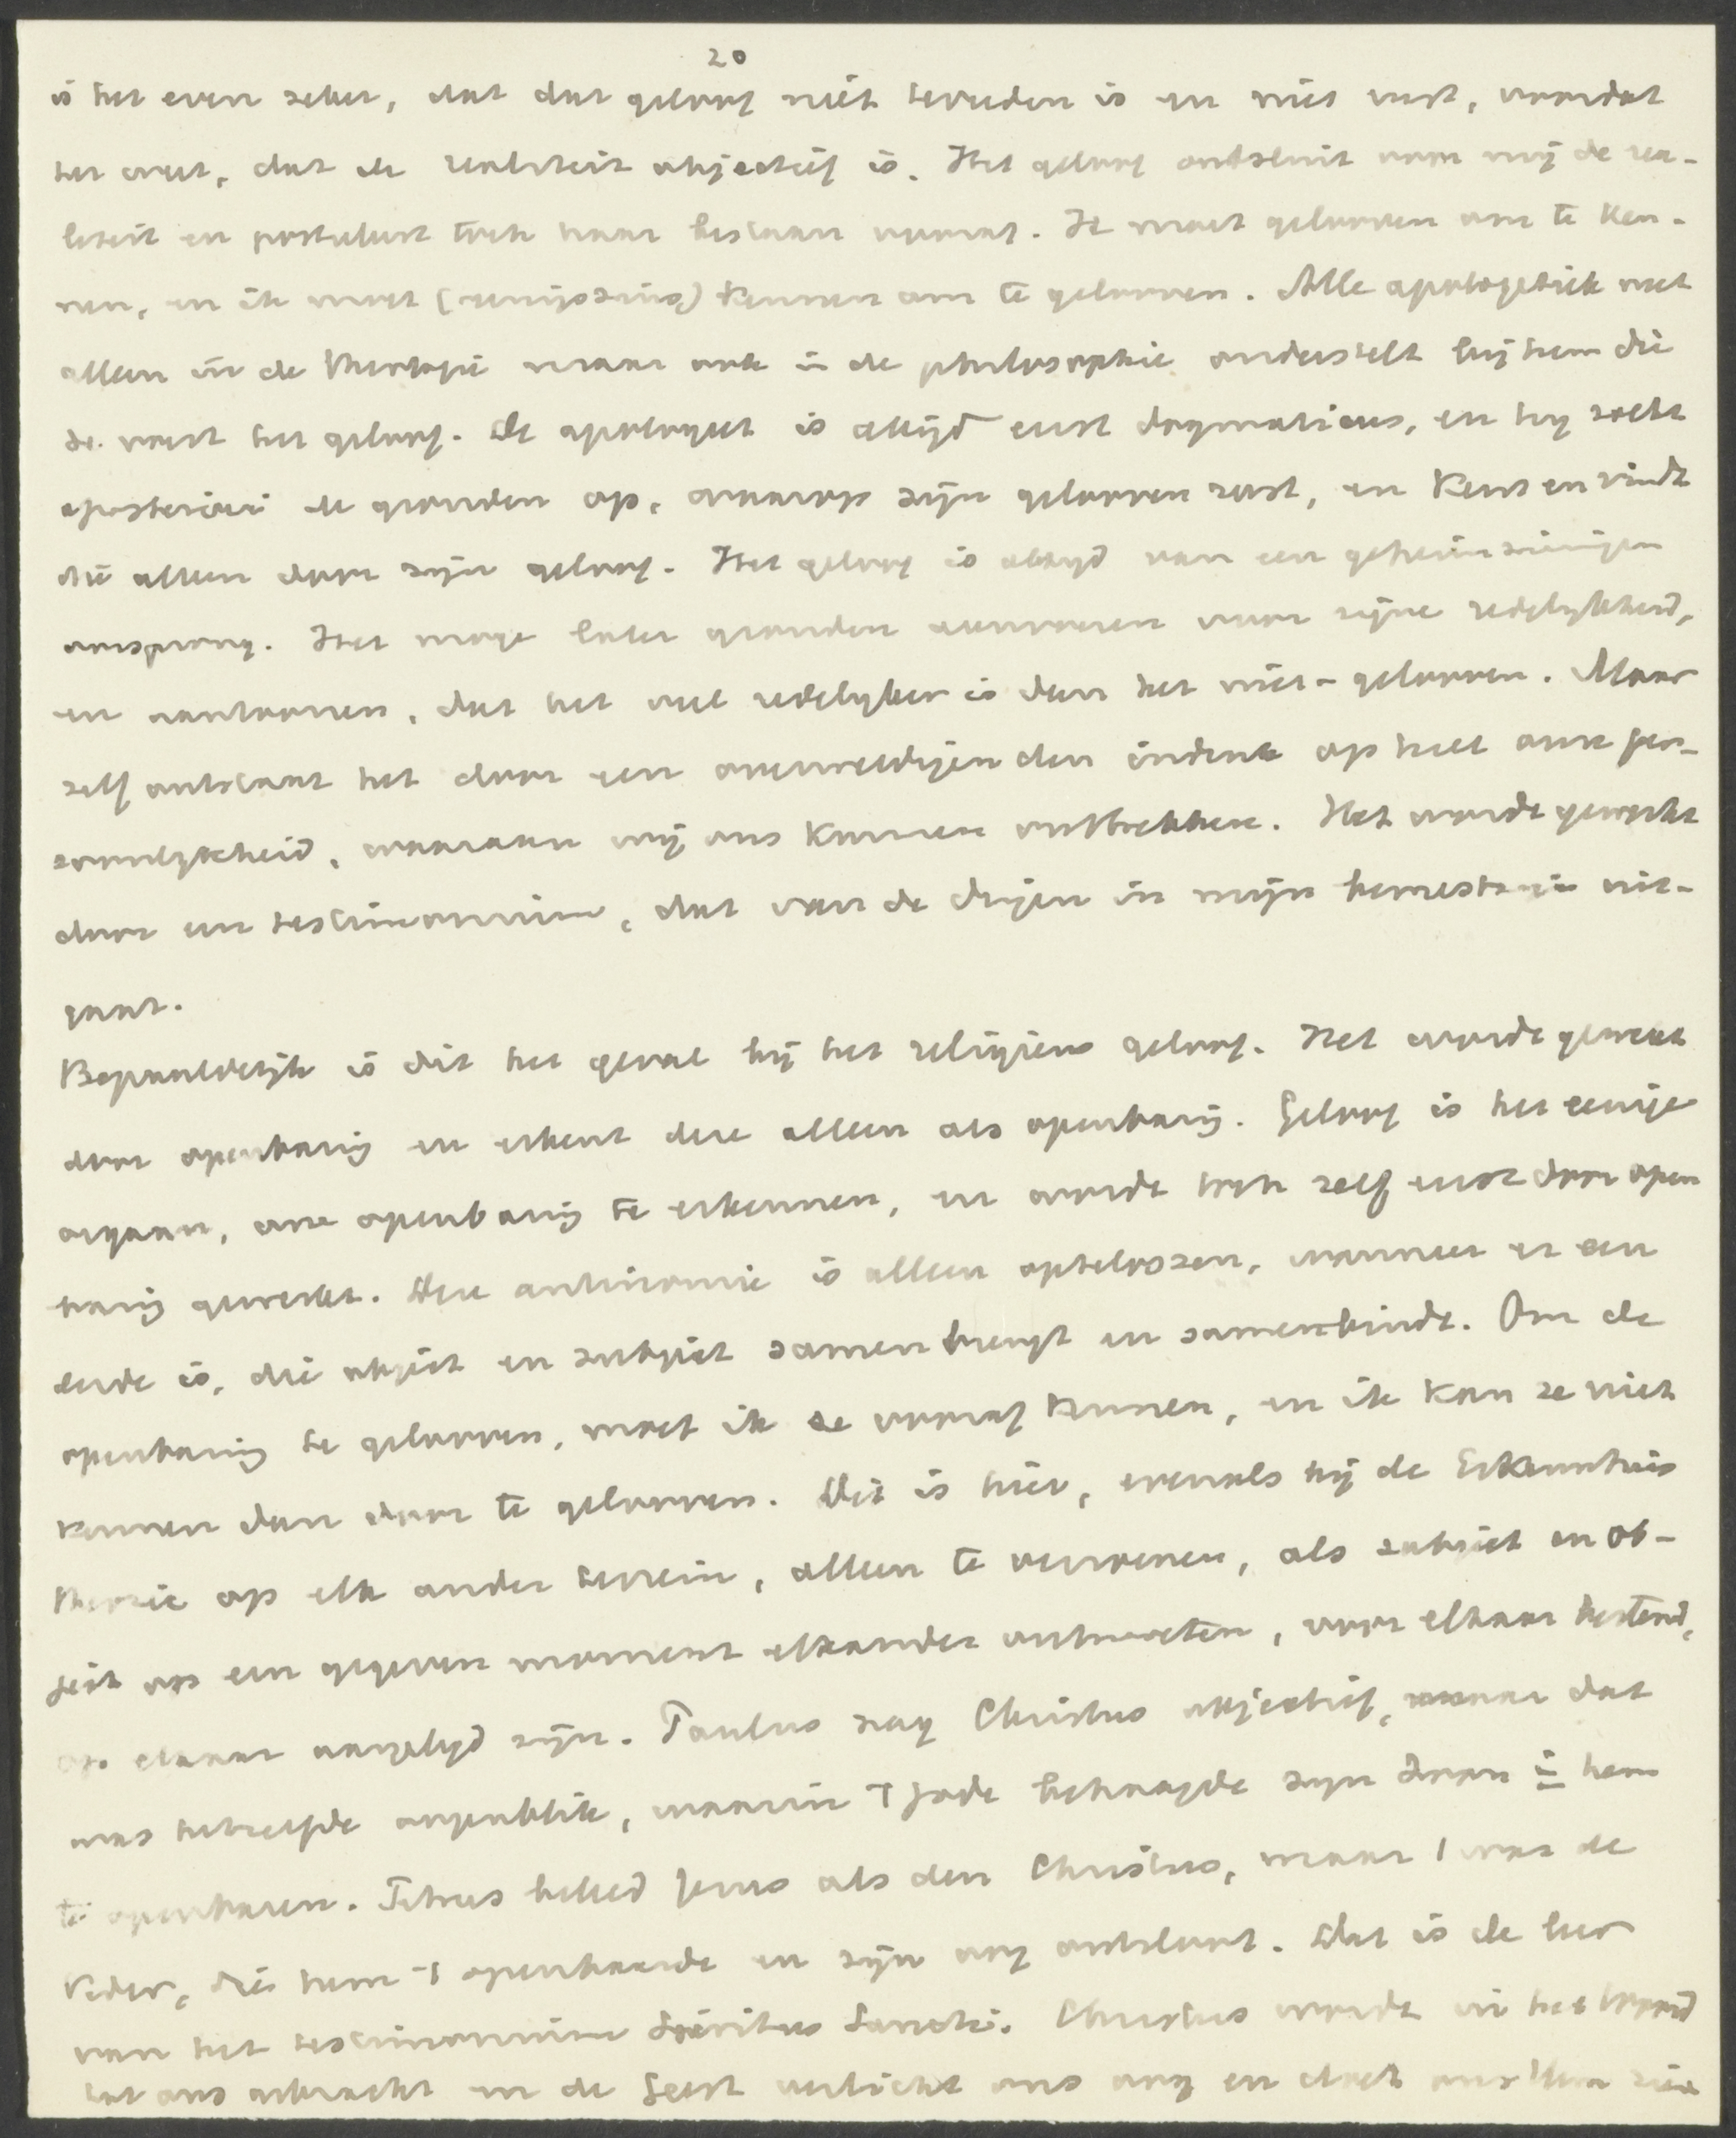 20
is het even zeker, dat dat geloof niet tevreden is en niet rust, voordat
het weet, dat de realiteit objectief is. Het geloof ontsluit voor mij de rea-
liteit en postuleert toch haar bestaan vooraf. Ik moet gelooven om te ken-
nen, en ik moet (eenigszins) kennen om te gelooven. Alle apologetiek niet
alleen in de theologie maar ook in de philosophie onderstelt bij hem die
ze voert het geloof. De apologeet is altijd eerst dogmaticus, en hij zoekt
aposteriori de gronden op, waarop zijn gelooven rust, en kent en vindt
die alleen door zijn geloof. Het geloof is altijd van een geheimzinnigen
oorsprong. Het moge later gronden aanvoeren voor zijne redelijkheid,
en aantoonen, dat het veel redelijker is dan het niet-gelooven. Maar
zelf ontstaat het door een overweldigenden indruk op heel onze per-
soonlijkheid, waaraan wij ons kunnen onttrekken. Het wordt gewerkt
door een testimonium, dat van de dingen in mijn bewustzijn uit-
gaat.
Bepaaldelijk is dit het geval bij het religieus geloof. Het wordt gewekt
door openbaring en erkent deze alleen als openbaring. Geloof is het eenige
orgaan, om openbaring te erkennen, en wordt toch zelf eerst door open
baring gewerkt. Deze antinomie is alleen optelossen, wanneer er een
derde is, die object en subject samenbrengt en samenbindt. Om de
openbaring te gelooven, moet ik ze vooraf kennen, en ik kan ze niet
kennen dan door te gelooven. Dit is hier, evenals bij de Erkenntnis
theorie op elk ander terrein, alleen te verzoenen, als subject en ob-
ject op een gegeven moment elkander ontmoeten, voor elkaar bestemd,
op elkaar aangelegd zijn. Paulus zag Christus objectief, maar dat
was hetzelfde oogenblik, waarin 't Gode behaagde zijn Zoon in hem
te openbaren. Petrus beleed Jezus als den Christus, maar 't was de
Vader, die hem 't openbaarde en zijn oog ontsloot. Dat is de leer
van het testimonium Spiritus Sancti. Christus wordt in het Woord
tot ons gebracht en de Geest verlicht ons oog en doet ons Hem zien